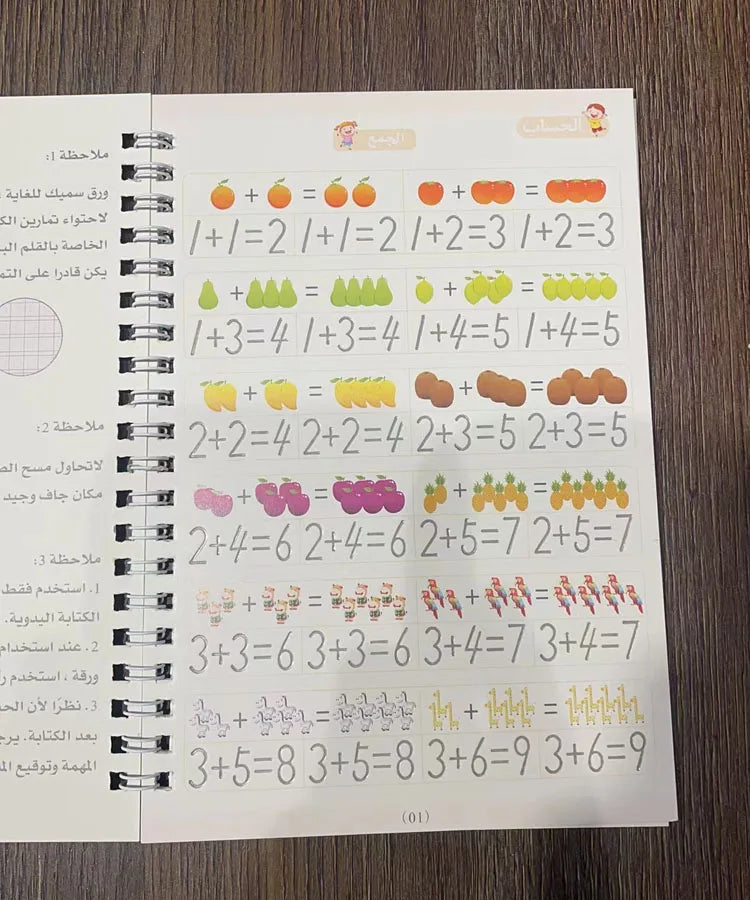 الحساب
الجمع
+ = + =
1+1=2 1+1=2 1+2=3 1+2=3
+ = + =
1+3=4 1+3=4 1+4=5 1+4=5
+ = + =
2+2=4 2+2=4 2+3=5 2+3=5
+ = + =
2+4=6 2+4=6 2+5=7 2+5=7
+ = + =
3+3=6 3+3=6 3+4=7 3+4=7
+ = + =
3+5=8 3+5=8 3+6=9 3+6=9
(01)
ملاحظة 1:
ورق سميك للغاية
لاحتواء تمارين
الخاصة بالقلم
يكن قادرا على
ملاحظة 2:
لاتحاول مسح
مكان جاف وجيد
ملاحظة 3:
1. استخدم فقط
الكتابة اليدوية.
2. عند استخدام
ورقة ، استخدم
3. نظرًا لأن
بعد الكتابة.
المهمة وتوقيع